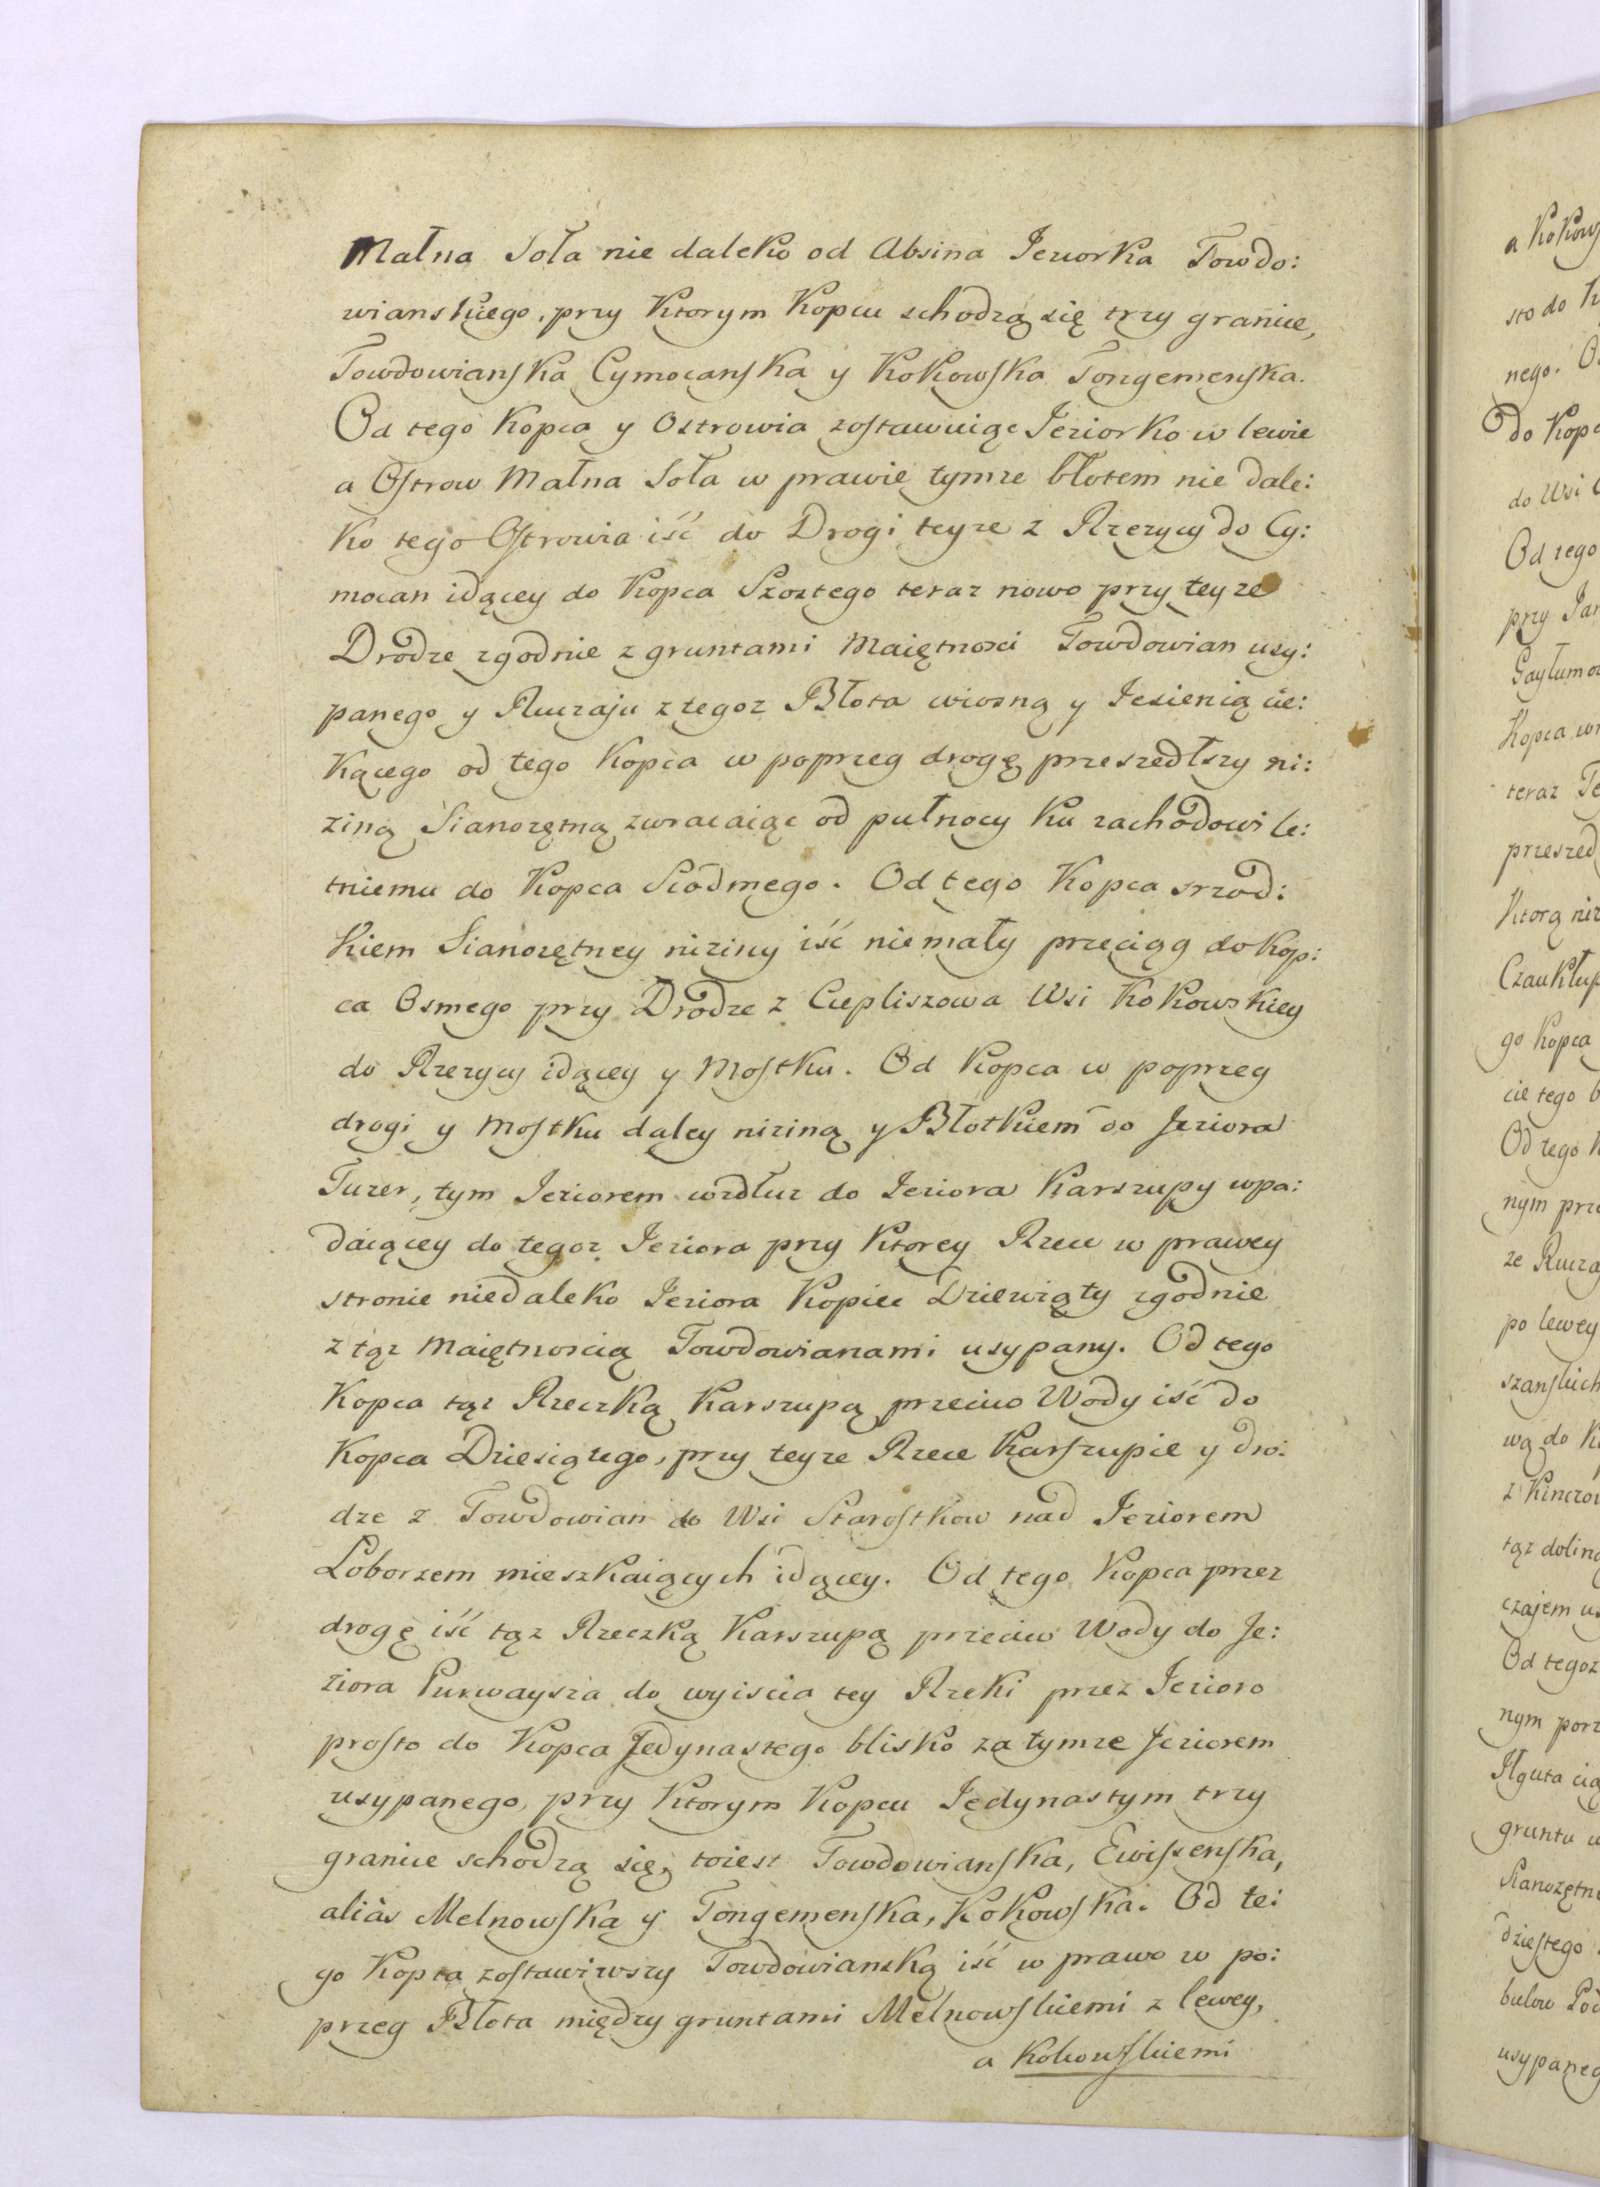 Małna Soła nie daleko od Absina Jeziorka Towdo:
wianskiego, przy Ktorym Kopcu schodzą się trzy granice,
Towdowianska Cymocanska y Kokowska Tongemenska.
Od tego Kopca y Ostrowia zostawuiąc Jeziorko w lewie
a Ostrow Małna Soła w prawie tymze błotem nie dale:
ko tego Ostrowia iść do Drogi teyze z Rzezycy do Cy:
mocan idącey do Kopca Szoztego teraz nowo przy teyze
Drodze zgodnie z gruntami Maiętnosci Towdowian usy:
panego y Ruczaju z tegoz Błota wiosną y Jesienią cie:
kącego od tego Kopca w poprzeg drogę przeszedłszy ni:
ziną Sianozętną zwracaiąc od pułnocy ku zachodowi le:
tniemu do Kopca Siodmego. Od tego Kopca srzod:
kiem Sianozętney niziny iść niemały przeciąg do Kop:
ca Osmego przy Drodze z Ciepliszowa Wsi Kokowskiey
do Rzezycy idącey y Mostku. Od Kopca w poprzeg
drogi y Mostku daley niziną y Błotkiem do Jeziora
Turer, tym Jeziorem wzdłuz do Jeziora Karszupy wpa:
daiącey do tegoz Jeziora przy Ktorey Rzece w prawey
stronie niedaleko Jeziora Kopiec Dziewiąty zgodnie
z tąz Maiętnoscią Towdowianami usypany. Od tego
Kopca tąz Rzeczką Karszupą przeciw Wody iść do
Kopca Dziesiątego, przy teyze Rzece Karszupie y dro:
dze z Towdowian do Wsi Starostkow nad Jeziorem
Loborzem mieszkaiących idącey. Od tego Kopca przez
drogę iść tąz Rzeczką Karszupą przeciw Wody do Je:
ziora Purwaysza do wyiscia tey Rzeki przez Jezioro
prosto do Kopca Jedynastego blisko za tymze Jeziorem
usypanego, przy Ktorym Kopcu Jedynastym trzy
granice schodzą się, toiest Towdowianska, Ewiszenska,
aliàs Melnowska y Tongemenska, Kokowska. Od te:
go Kopca zostawiwszy Towdowianską iść w prawo w po:
przeg Błota między gruntami Melnowskiemi z lewey,
a Kokowskiemi